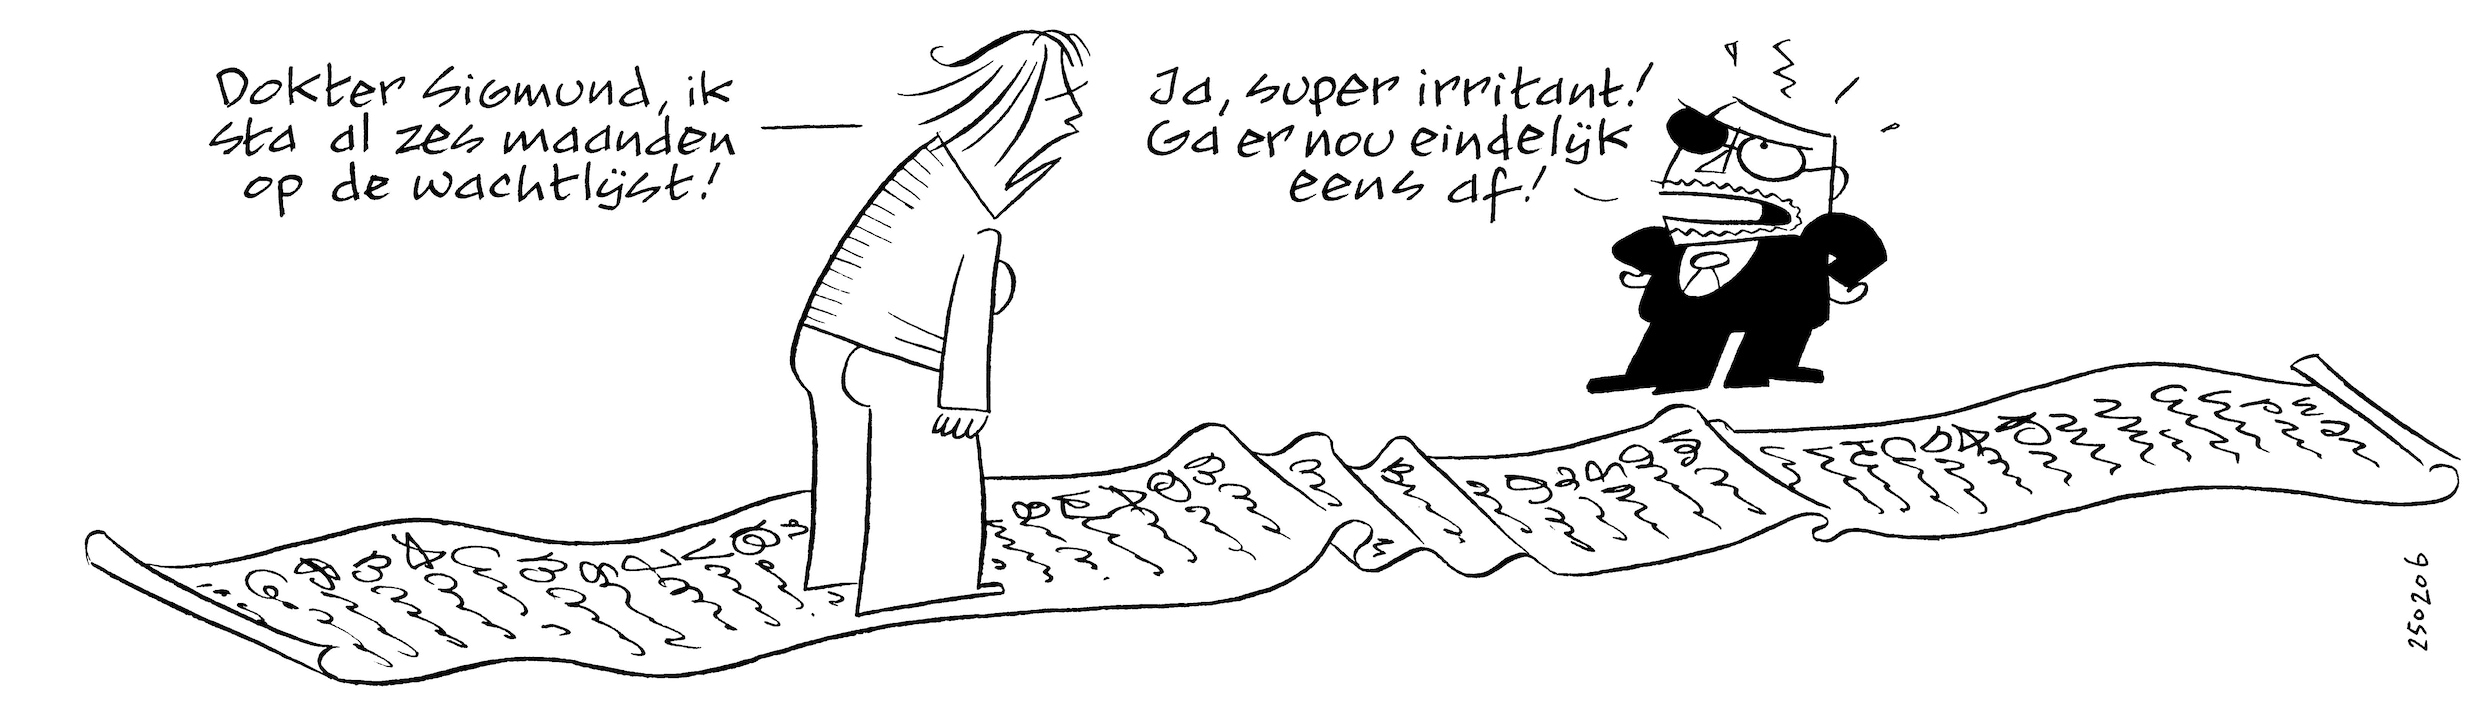 Dokter Sigmund, ik
sta al zes maanden
op de wachtlijst!
Ja, super irritant!
Ga er nou eindelijk
eens af!
250206